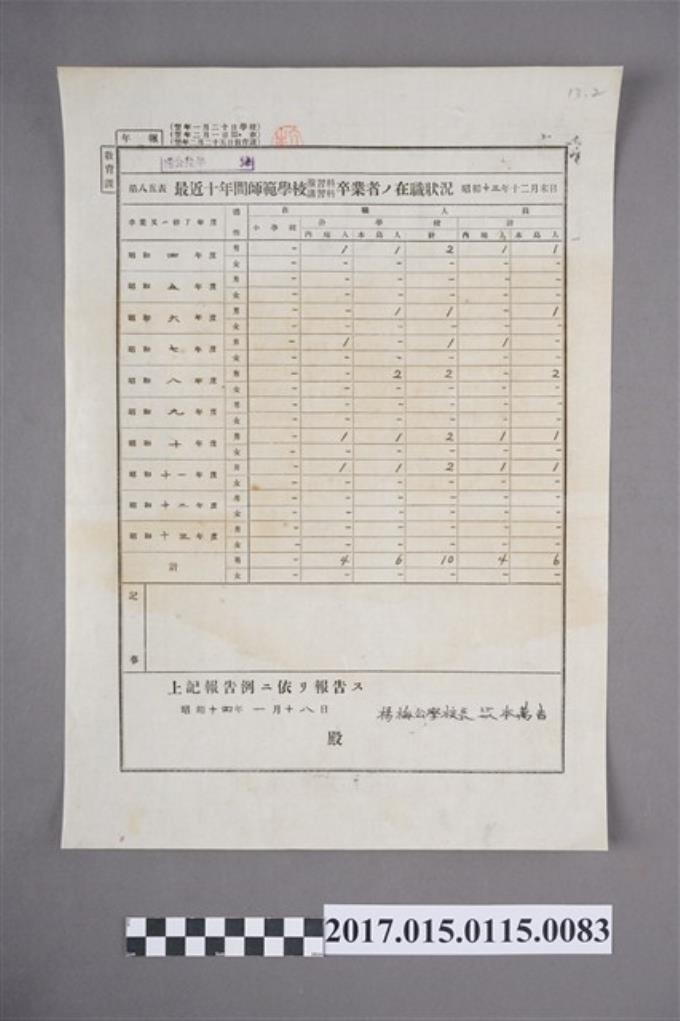 13.2
年報
(翌年一月二十日學校)
(翌年二月一日郡・市)
(翌年二月二十五日教育課)
教育課
第八五表 最近十年間師範學校演習科講習科卒業者ノ在職狀況 昭和十三年十二月末日
卒業又ハ修了年度 在職人員
小學校 公學校 計
內地人 本島人 計 內地人 本島人
昭和四年度 男 - 1 1 2 1 1
女 - - - - - -
昭和五年度 男 - - - - - -
女 - - - - - -
昭和六年度 男 - - 1 1 - 1
女 - - - - - -
昭和七年度 男 - 1 - 1 1 -
女 - - - - - -
昭和八年度 男 - - 2 2 - 2
女 - - - - - -
昭和九年度 男 - - - - - -
女 - - - - - -
昭和十年度 男 - 1 1 2 1 1
女 - - - - - -
昭和十一年度 男 - 1 1 2 1 1
女 - - - - - -
昭和十二年度 男 - - - - - -
女 - - - - - -
昭和十三年度 男 - - - - - -
女 - - - - - -
計 男 - 4 6 10 4 6
女 - - - - - -
記事
上記報告例ニ依リ報告ス
昭和十四年一月十八日
楊梅公學校長
殿
2017.015.0115.0083